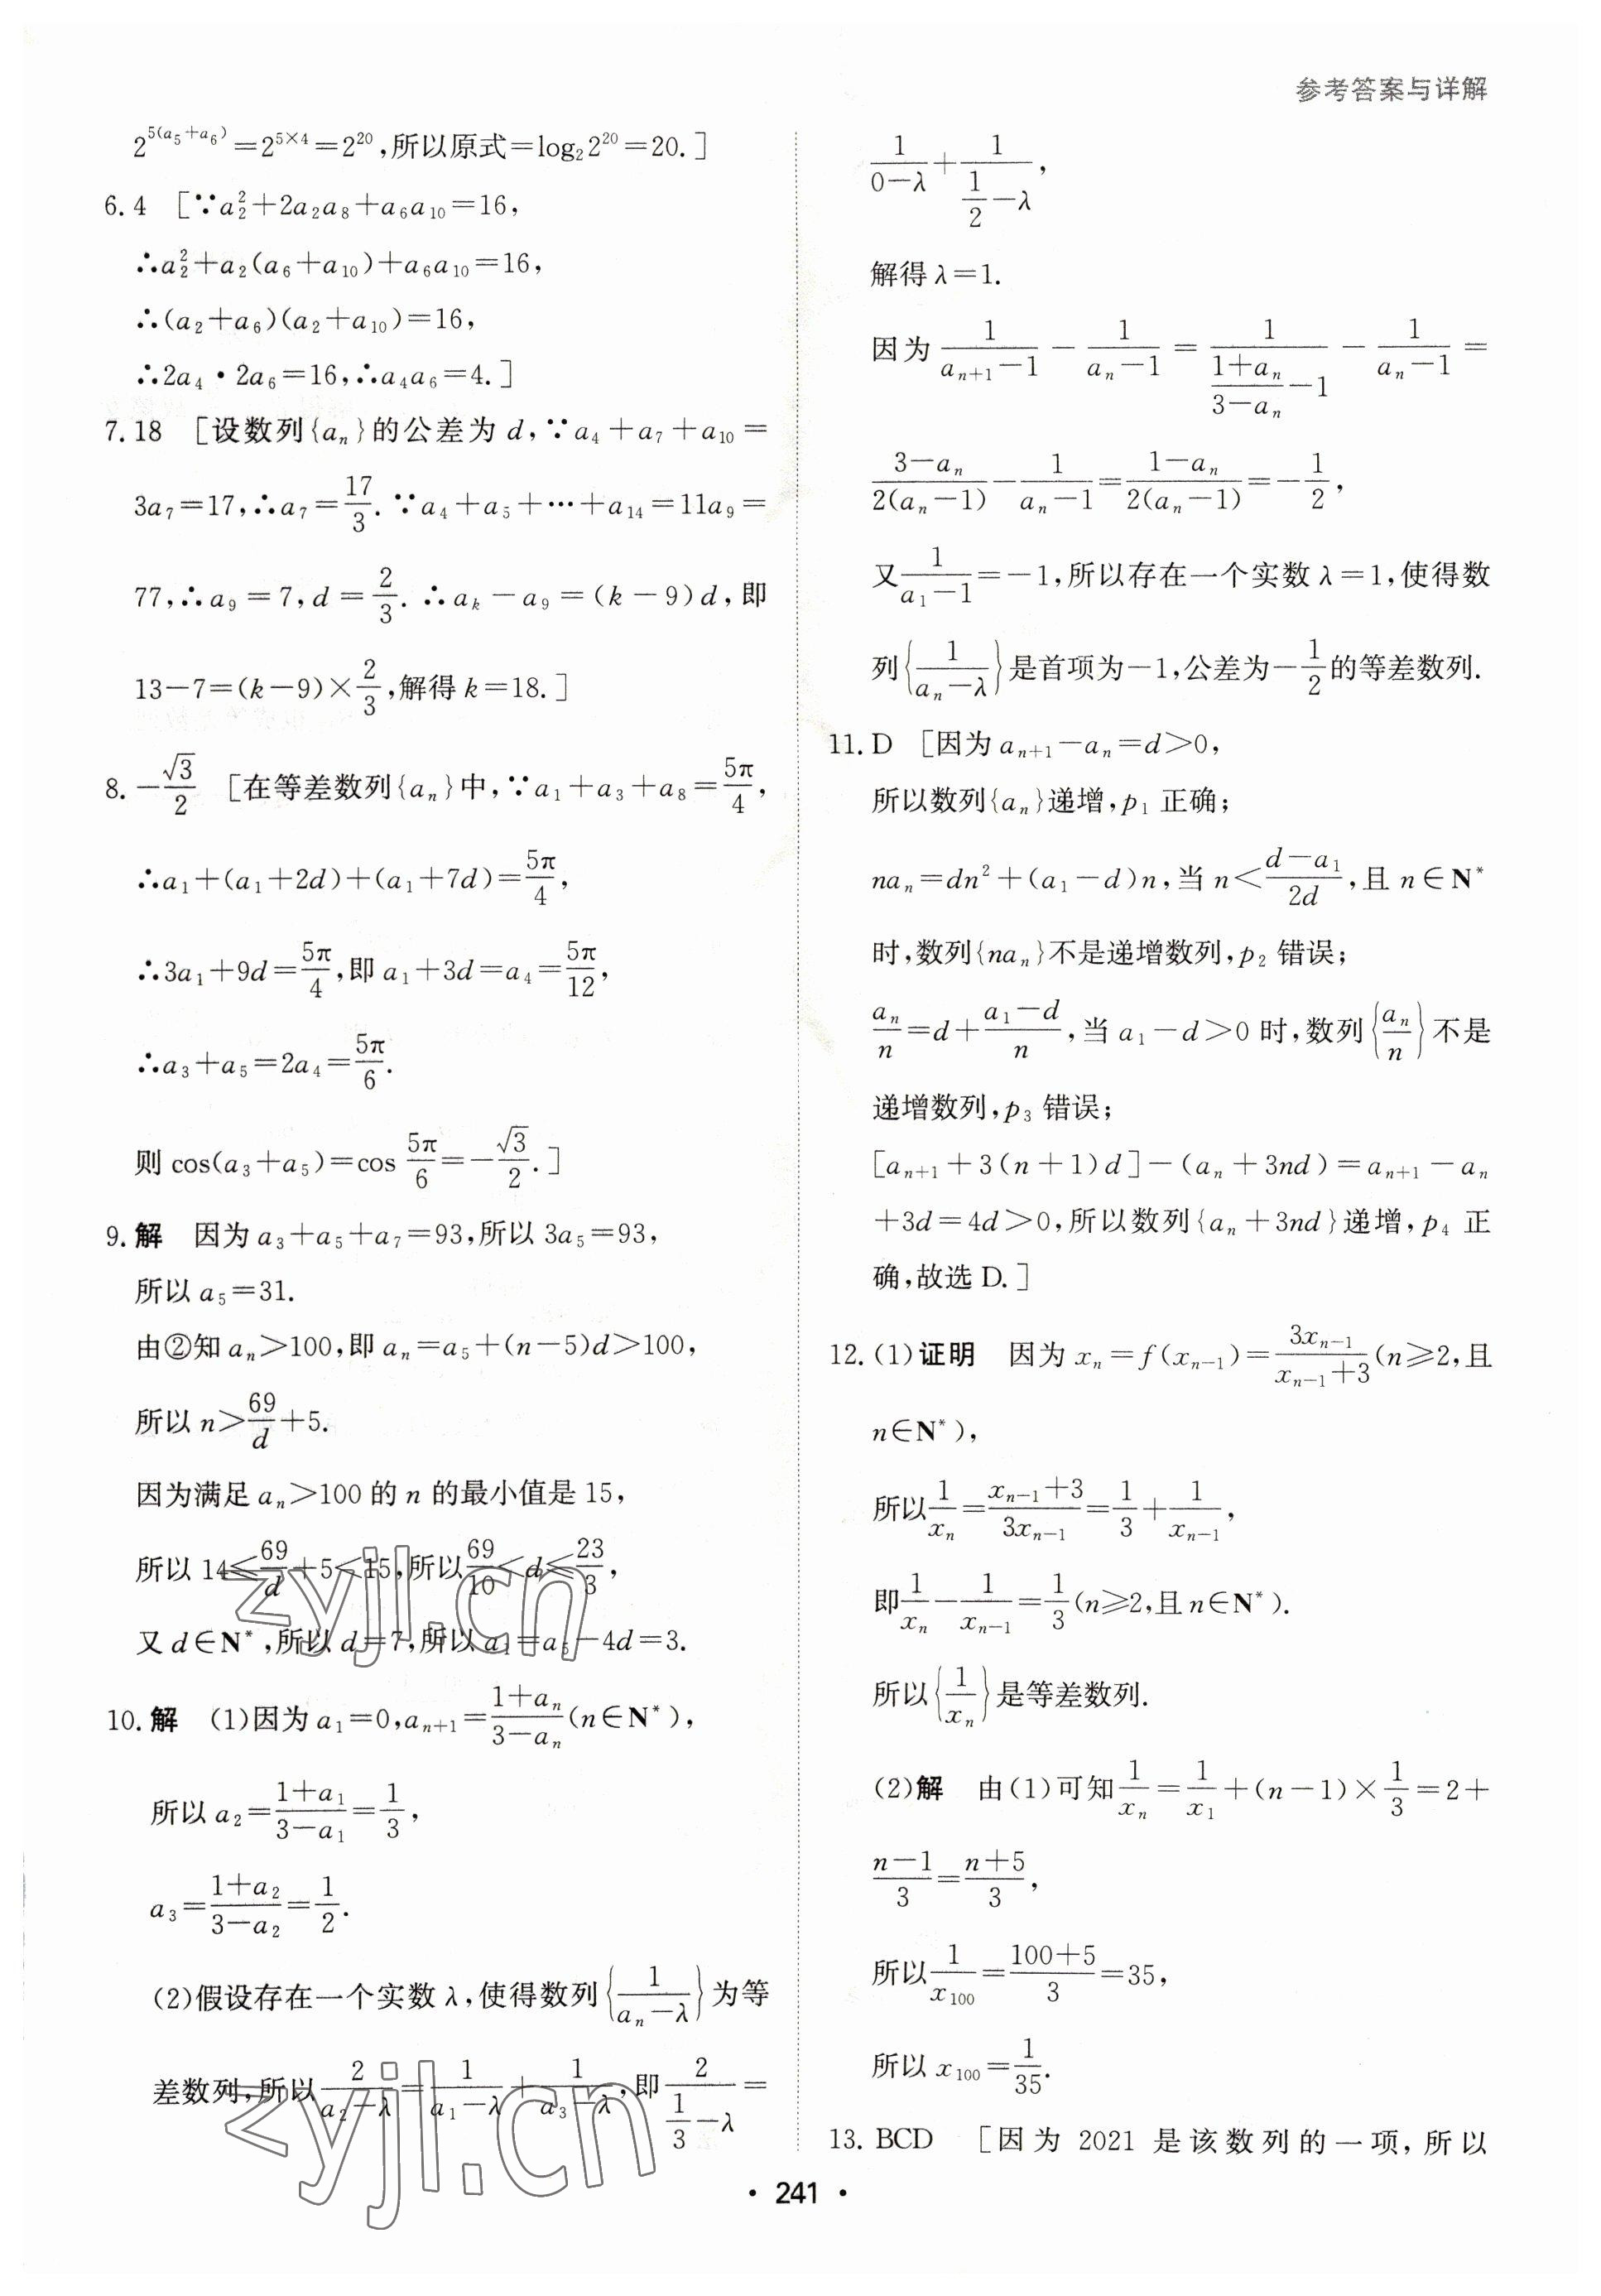 参考答案与详解
2^{5(a₅+a₆)}=2^{5×4}=2^{20},所以原式=log₂2^{20}=20.]
6.4 [∵a₂²+2a₂a₈+a₆a₁₀=16,
∴a₂²+a₂(a₆+a₁₀)+a₆a₁₀=16,
∴(a₂+a₆)(a₂+a₁₀)=16,
∴2a₄·2a₆=16,∴a₄a₆=4.]
7.18 [设数列{aₙ}的公差为d,∵a₄+a₇+a₁₀=
3a₇=17,∴a₇=\frac{17}{3}.∵a₄+a₅+⋯+a₁₄=11a₉=
77,∴a₉=7,d=\frac{2}{3}.∴aₖ-a₉=(k-9)d,即
13-7=(k-9)×\frac{2}{3},解得k=18.]
8.-\frac{\sqrt{3}}{2} [在等差数列{aₙ}中,∵a₁+a₃+a₈=\frac{5π}{4},
∴a₁+(a₁+2d)+(a₁+7d)=\frac{5π}{4},
∴3a₁+9d=\frac{5π}{4},即a₁+3d=a₄=\frac{5π}{12},
∴a₃+a₅=2a₄=\frac{5π}{6}.
则cos(a₃+a₅)=cos\frac{5π}{6}=-\frac{\sqrt{3}}{2}.]
9.解 因为a₃+a₅+a₇=93,所以3a₅=93,
所以a₅=31.
由②知aₙ>100,即aₙ=a₅+(n-5)d>100,
所以n>\frac{69}{d}+5.
因为满足aₙ>100的n的最小值是15,
所以14≤\frac{69}{d}+5<15,所以\frac{69}{10}<d≤\frac{23}{3},
又d∈N*,所以d=7,所以a₁=a₅-4d=3.
10.解 (1)因为a₁=0,aₙ₊₁=\frac{1+aₙ}{3-aₙ}(n∈N*),
所以a₂=\frac{1+a₁}{3-a₁}=\frac{1}{3},
a₃=\frac{1+a₂}{3-a₂}=\frac{1}{2}.
(2)假设存在一个实数λ,使得数列{\frac{1}{aₙ-λ}}为等
差数列,所以\frac{2}{a₂-λ}=\frac{1}{a₁-λ}+\frac{1}{a₃-λ},即\frac{2}{\frac{1}{3}-λ}=
\frac{1}{0-λ}+\frac{1}{\frac{1}{2}-λ},
解得λ=1.
因为\frac{1}{aₙ₊₁-1}-\frac{1}{aₙ-1}=\frac{1}{\frac{1+aₙ}{3-aₙ}-1}-\frac{1}{aₙ-1}=
\frac{3-aₙ}{2(aₙ-1)}-\frac{1}{aₙ-1}=\frac{1-aₙ}{2(aₙ-1)}=-\frac{1}{2},
又\frac{1}{a₁-1}=-1,所以存在一个实数λ=1,使得数
列{\frac{1}{aₙ-λ}}是首项为-1,公差为-\frac{1}{2}的等差数列.
11.D [因为aₙ₊₁-aₙ=d>0,
所以数列{aₙ}递增,p₁正确;
naₙ=dn²+(a₁-d)n,当n<\frac{d-a₁}{2d},且n∈N*
时,数列{naₙ}不是递增数列,p₂错误;
\frac{aₙ}{n}=d+\frac{a₁-d}{n},当a₁-d>0时,数列{\frac{aₙ}{n}}不是
递增数列,p₃错误;
[aₙ₊₁+3(n+1)d]-(aₙ+3nd)=aₙ₊₁-aₙ
+3d=4d>0,所以数列{aₙ+3nd}递增,p₄正
确,故选D.]
12.(1)证明 因为xₙ=f(xₙ₋₁)=\frac{3xₙ₋₁}{xₙ₋₁+3}(n≥2,且
n∈N*),
所以\frac{1}{xₙ}=\frac{xₙ₋₁+3}{3xₙ₋₁}=\frac{1}{3}+\frac{1}{xₙ₋₁},
即\frac{1}{xₙ}-\frac{1}{xₙ₋₁}=\frac{1}{3}(n≥2,且n∈N*).
所以{\frac{1}{xₙ}}是等差数列.
(2)解 由(1)可知\frac{1}{xₙ}=\frac{1}{x₁}+(n-1)×\frac{1}{3}=2+
\frac{n-1}{3}=\frac{n+5}{3},
所以\frac{1}{x₁₀₀}=\frac{100+5}{3}=35,
所以x₁₀₀=\frac{1}{35}.
13.BCD [因为2021是该数列的一项,所以
·241·
zyjl.cn
zyjl.cn